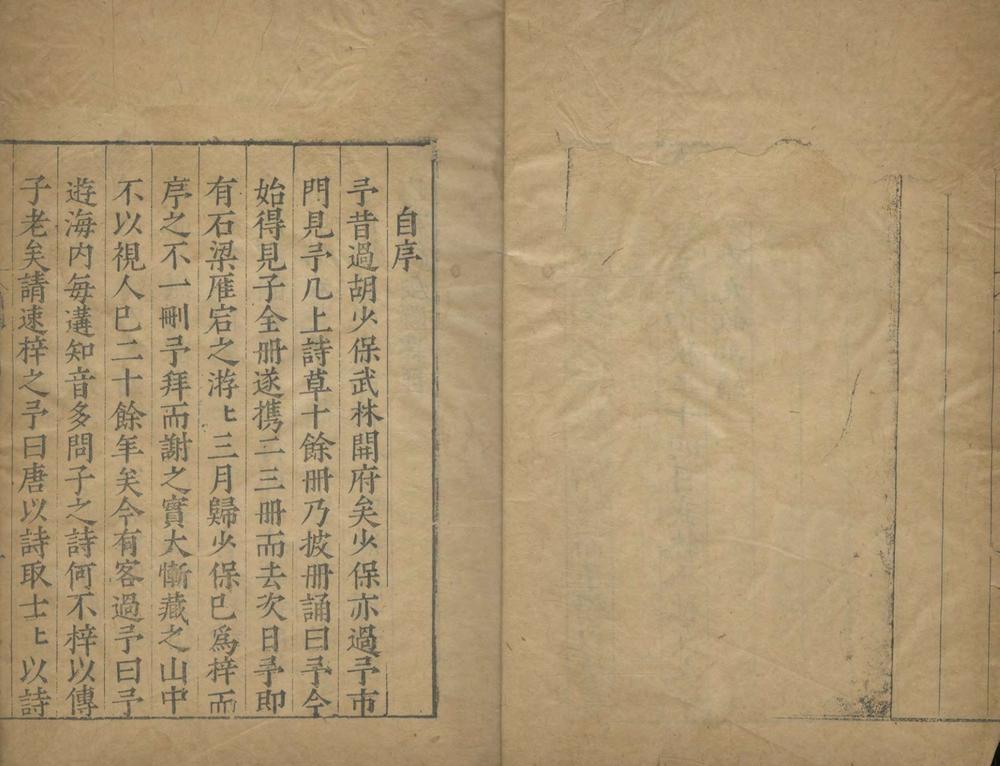 自序
予昔過胡少保武林開府矣少保亦過予市
門見予几上詩草十餘冊乃披冊誦曰予今
始得見子全冊遂携二三冊而去次日予即
有石梁雁宕之游匕三月歸少保已爲梓而
序之不一刪予拜而謝之實大慚藏之山中
不以視人已二十餘年矣今有客過予曰予
遊海内毎遘知音多問子之詩何不梓以傳
子老矣請速梓之予曰唐以詩取士匕以詩